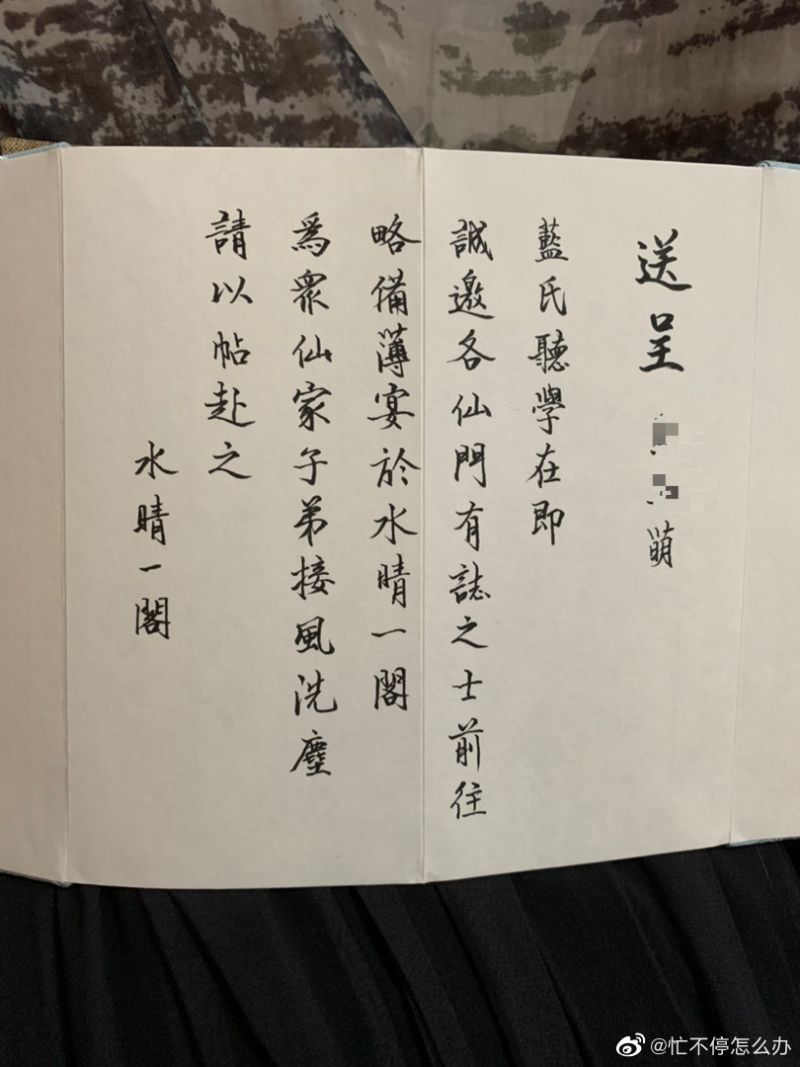 送呈 萌
藍氏聽學在即
誠邀各仙門有誌之士前往
略備薄宴於水晴一閣
爲眾仙家子弟接風洗塵
請以帖赴之
水晴一閣
@忙不停怎么办